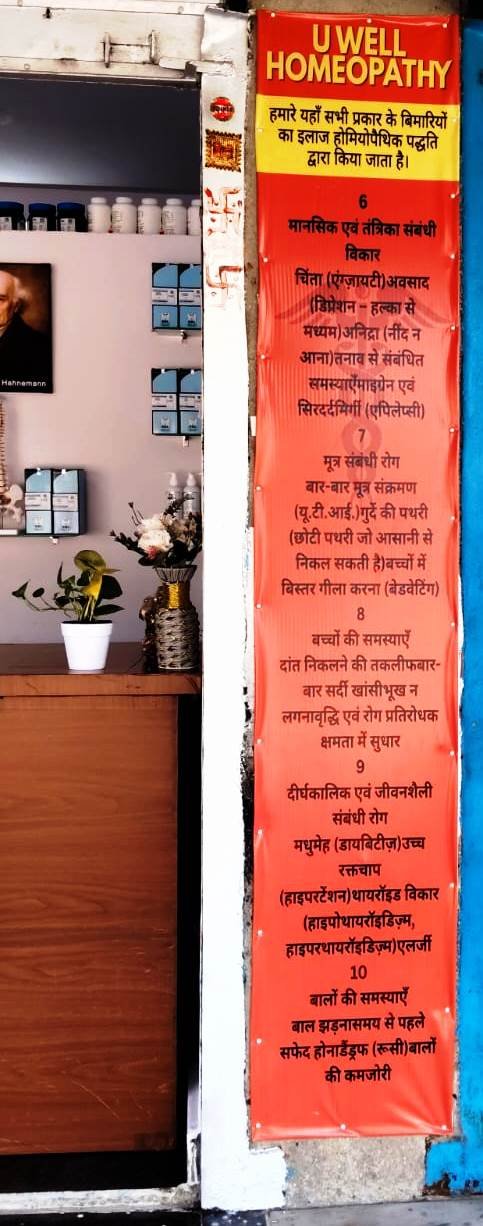 U WELL
HOMEOPATHY
हमारे यहाँ सभी प्रकार के बिमारियों
का इलाज होमियोपैथिक पद्धति
द्वारा किया जाता है।
6
मानसिक एवं तंत्रिका संबंधी
विकार
चिंता (एंग्ज़ायटी)अवसाद
(डिप्रेशन – हल्का से
मध्यम)अनिद्रा (नींद न
आना)तनाव से संबंधित
समस्याएँमाइग्रेन एवं
सिरदर्दमिर्गी (एपिलेप्सी)
7
मूत्र संबंधी रोग
बार-बार मूत्र संक्रमण
(यू.टी.आई.)गुर्दे की पथरी
(छोटी पथरी जो आसानी से
निकल सकती है)बच्चों में
बिस्तर गीला करना (बेडवेटिंग)
8
बच्चों की समस्याएँ
दांत निकलने की तकलीफबार-
बार सर्दी खांसीभूख न
लगनावृद्धि एवं रोग प्रतिरोधक
क्षमता में सुधार
9
दीर्घकालिक एवं जीवनशैली
संबंधी रोग
मधुमेह (डायबिटीज़)उच्च
रक्तचाप
(हाइपरटेंशन)थायरॉइड विकार
(हाइपोथायरॉइडिज़्म,
हाइपरथायरॉइडिज़्म)एलर्जी
10
बालों की समस्याएँ
बाल झड़नासमय से पहले
सफेद होनाडैंड्रफ (रूसी)बालों
की कमजोरी
Hahnemann